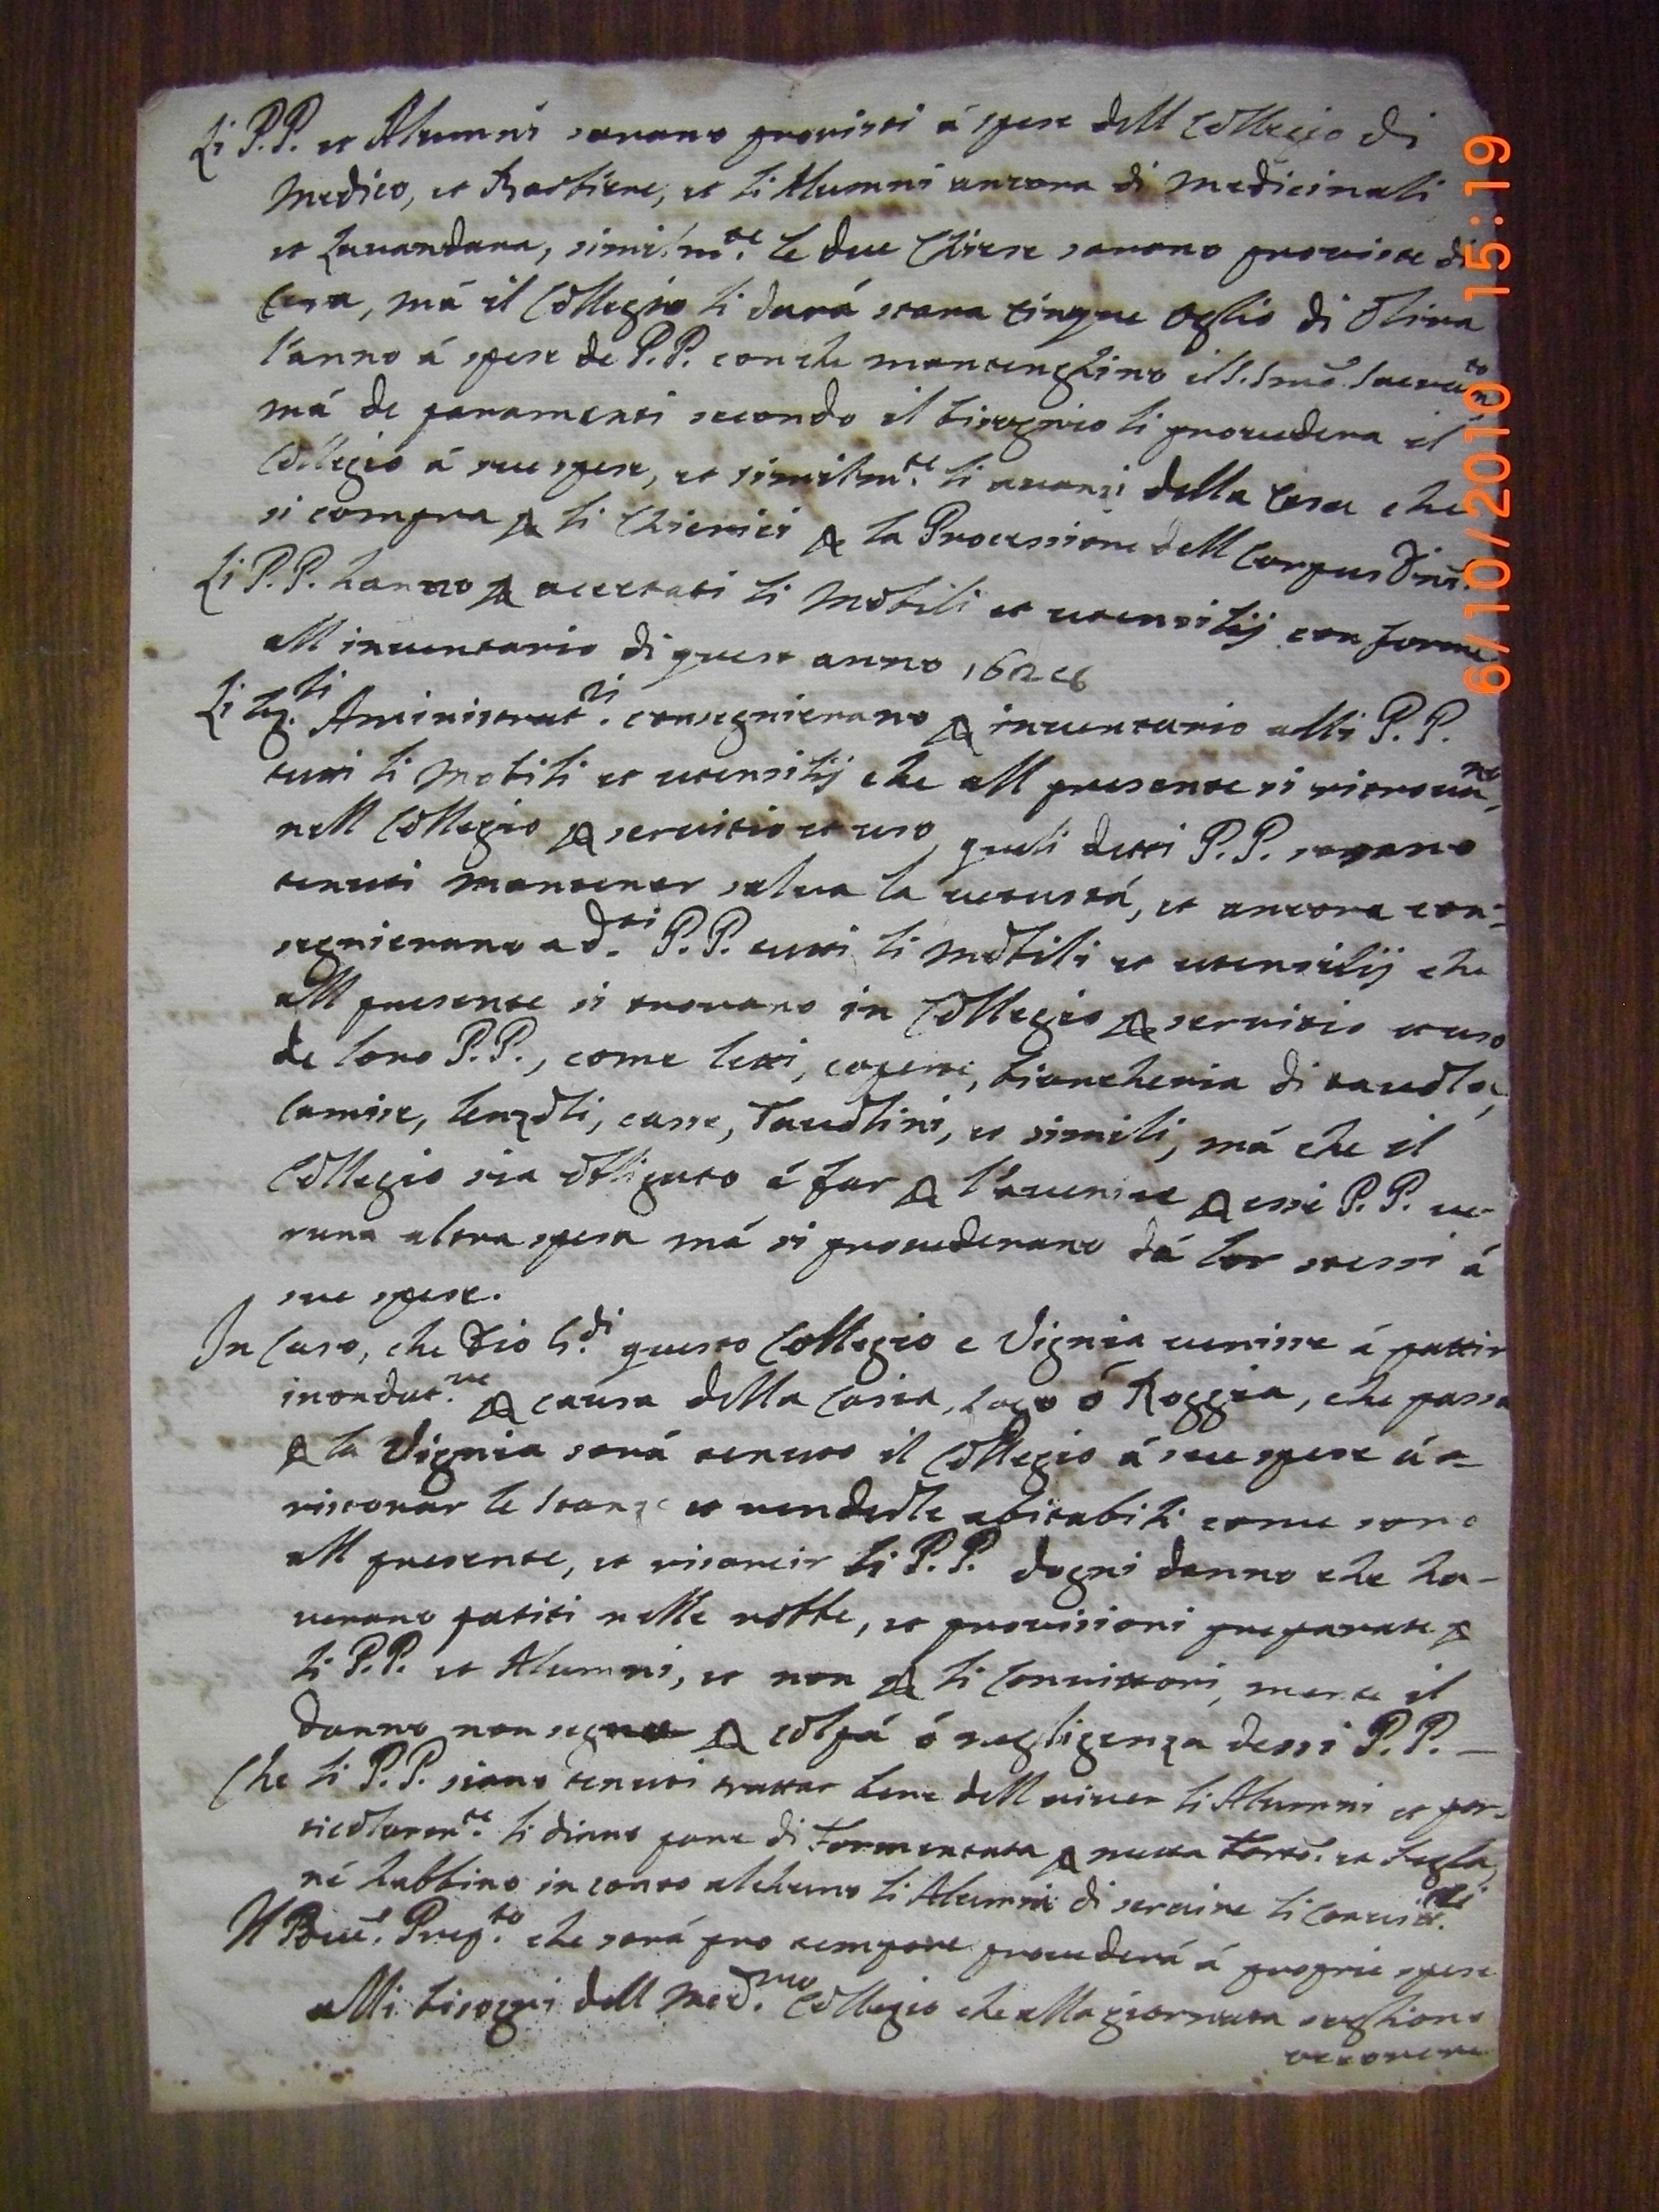 Li P.P. et Alumni sarano provisti á spese dell Collegio di
Medico, et Barbiere, et li Alumni ancora di medicinali
et Lavandara, simil.m.te le due Chiese sarano proviste di
Cera, má il Collegio li dará stara cinque oglio di oliva
l'anno á spese de P.P. con che mantenghino il S.Smo. Sacram.to
má de paramenti secondo il bisognio li provedera il
Collegio á sue spese, et similm.te li avanzi della Cera che
si compra p li Chierici p la Processione dell Corpus Dni.
Li P.P. hanno p accettati li Mobili et utensilij conforme
all inventario di quest anno
Li Aministrat.ri consegnierano p inventario alli P.P.
tutti li Mobili et utensilij che all presente si ritrova.no
nell Collegio p servitio et uso, queli detti P.P. sarano
tenuti mantener salva la vetustá, et ancora con=
segnierano a d.ti P.P. tutti li Mobili et utensilij che
all presente si trovano in Collegio p servitio et uso
de loro P.P., come letti, coperte, biancheria di tavola,
Camise, lenzoli, casse, Tavolini, et simili, má che il
Collegio sia obligato á far p l'avenire p essi P.P. ve-
runa altra spesa má si provederano dá lor stessi á
sue spese.
In Caso, che Dio G.di questo Collegio e Vignia venisse á pattir
inondat.ne p causa della Casta, Lago ó Roggia, che passa
p la Vignia sará tenuto il Collegio á sue spese á
ristorar le stanze et renderle abitabili come sono
all presente, et risarcir li P.P. dogni danno che ha-
verano patiti nelle robbe, et provisioni preparate p
li P.P. et Alumni, et non p li Convittori, mentre il
danno non segua p colpá ó negligenza dessi P.P. -
Che li P.P. siano tenuti trattar bene dell viver li Alumni et par-
ticolarm.te li diano pane di formentata p metta form.to et segla,
né habbino in conto alchuno li Alumni di servire li Convit.ri
Il Prev. che sará pro tempore provederá á proprie spese
alli bisogni dell med.mo Collegio che alla giornata sogliono
occorere